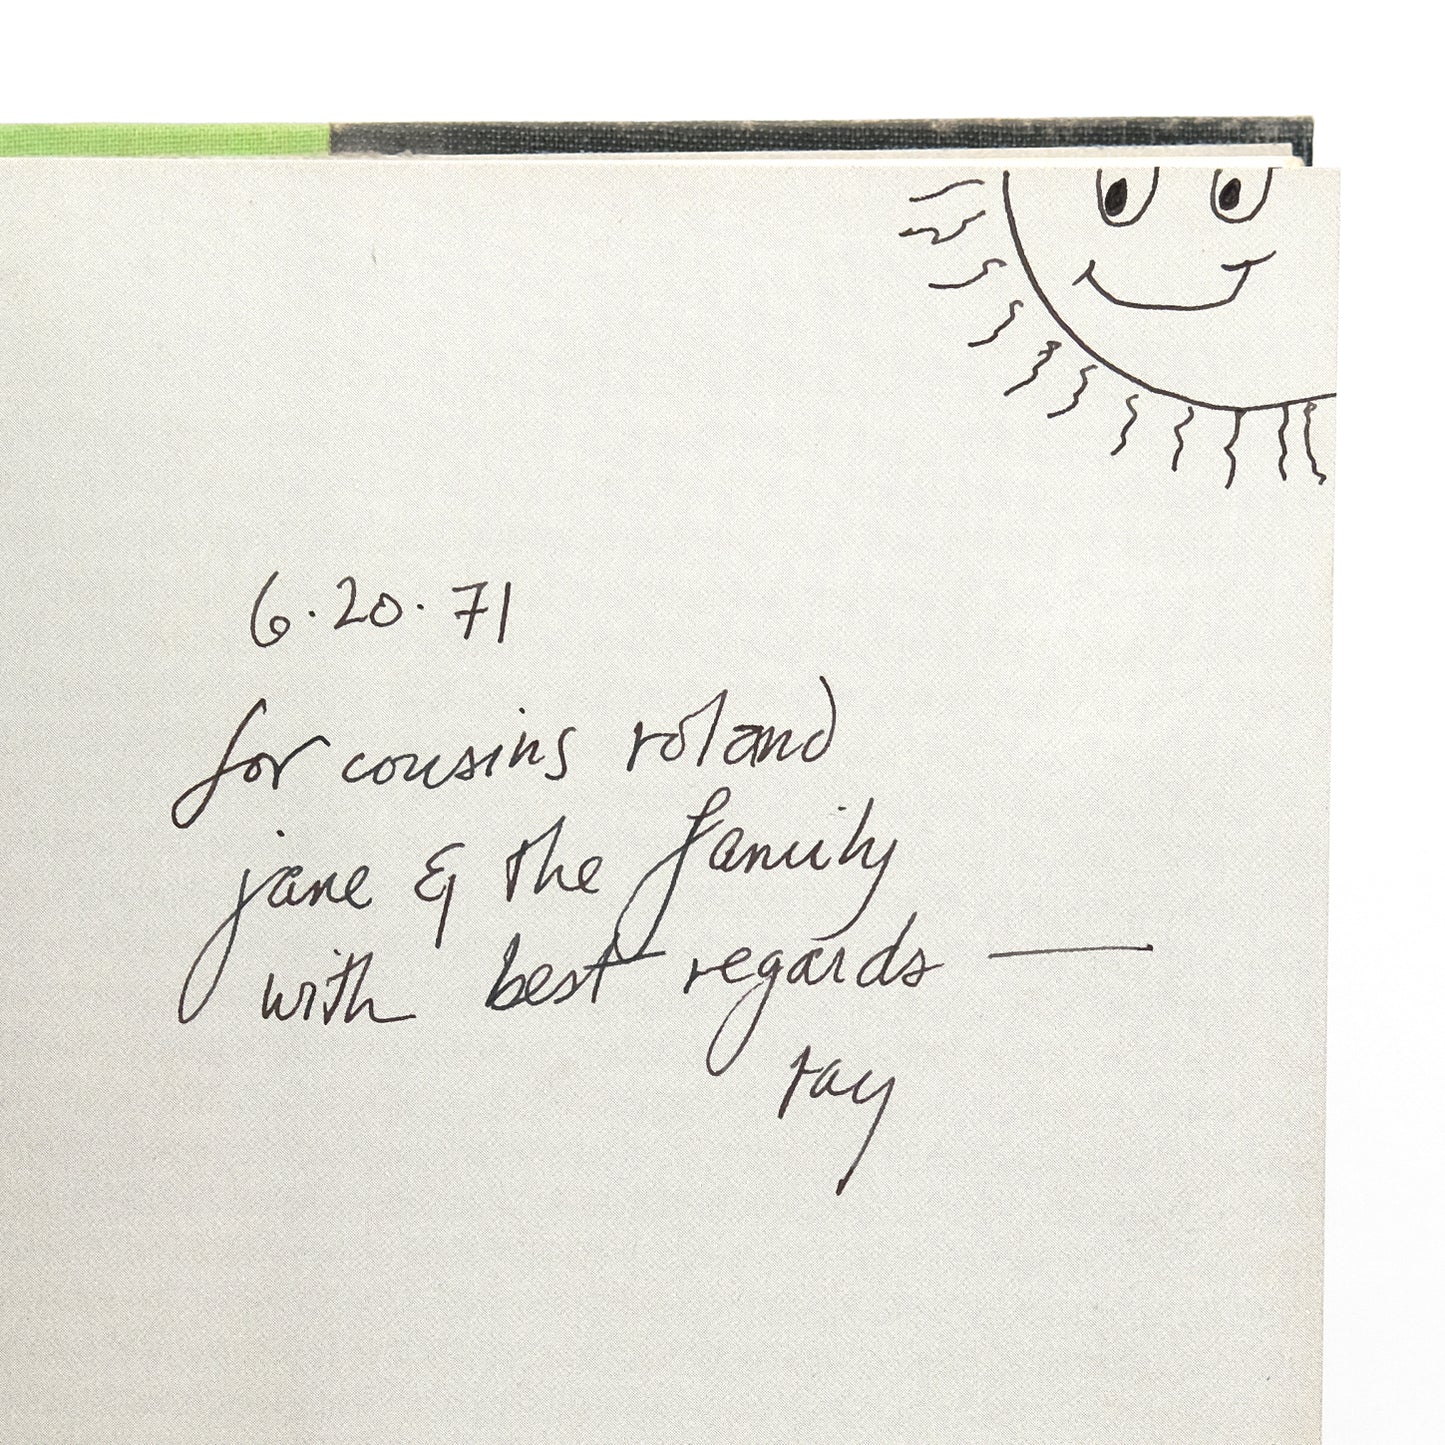 6·20·71
for cousins roland
jane & the family
with best regards —
ray